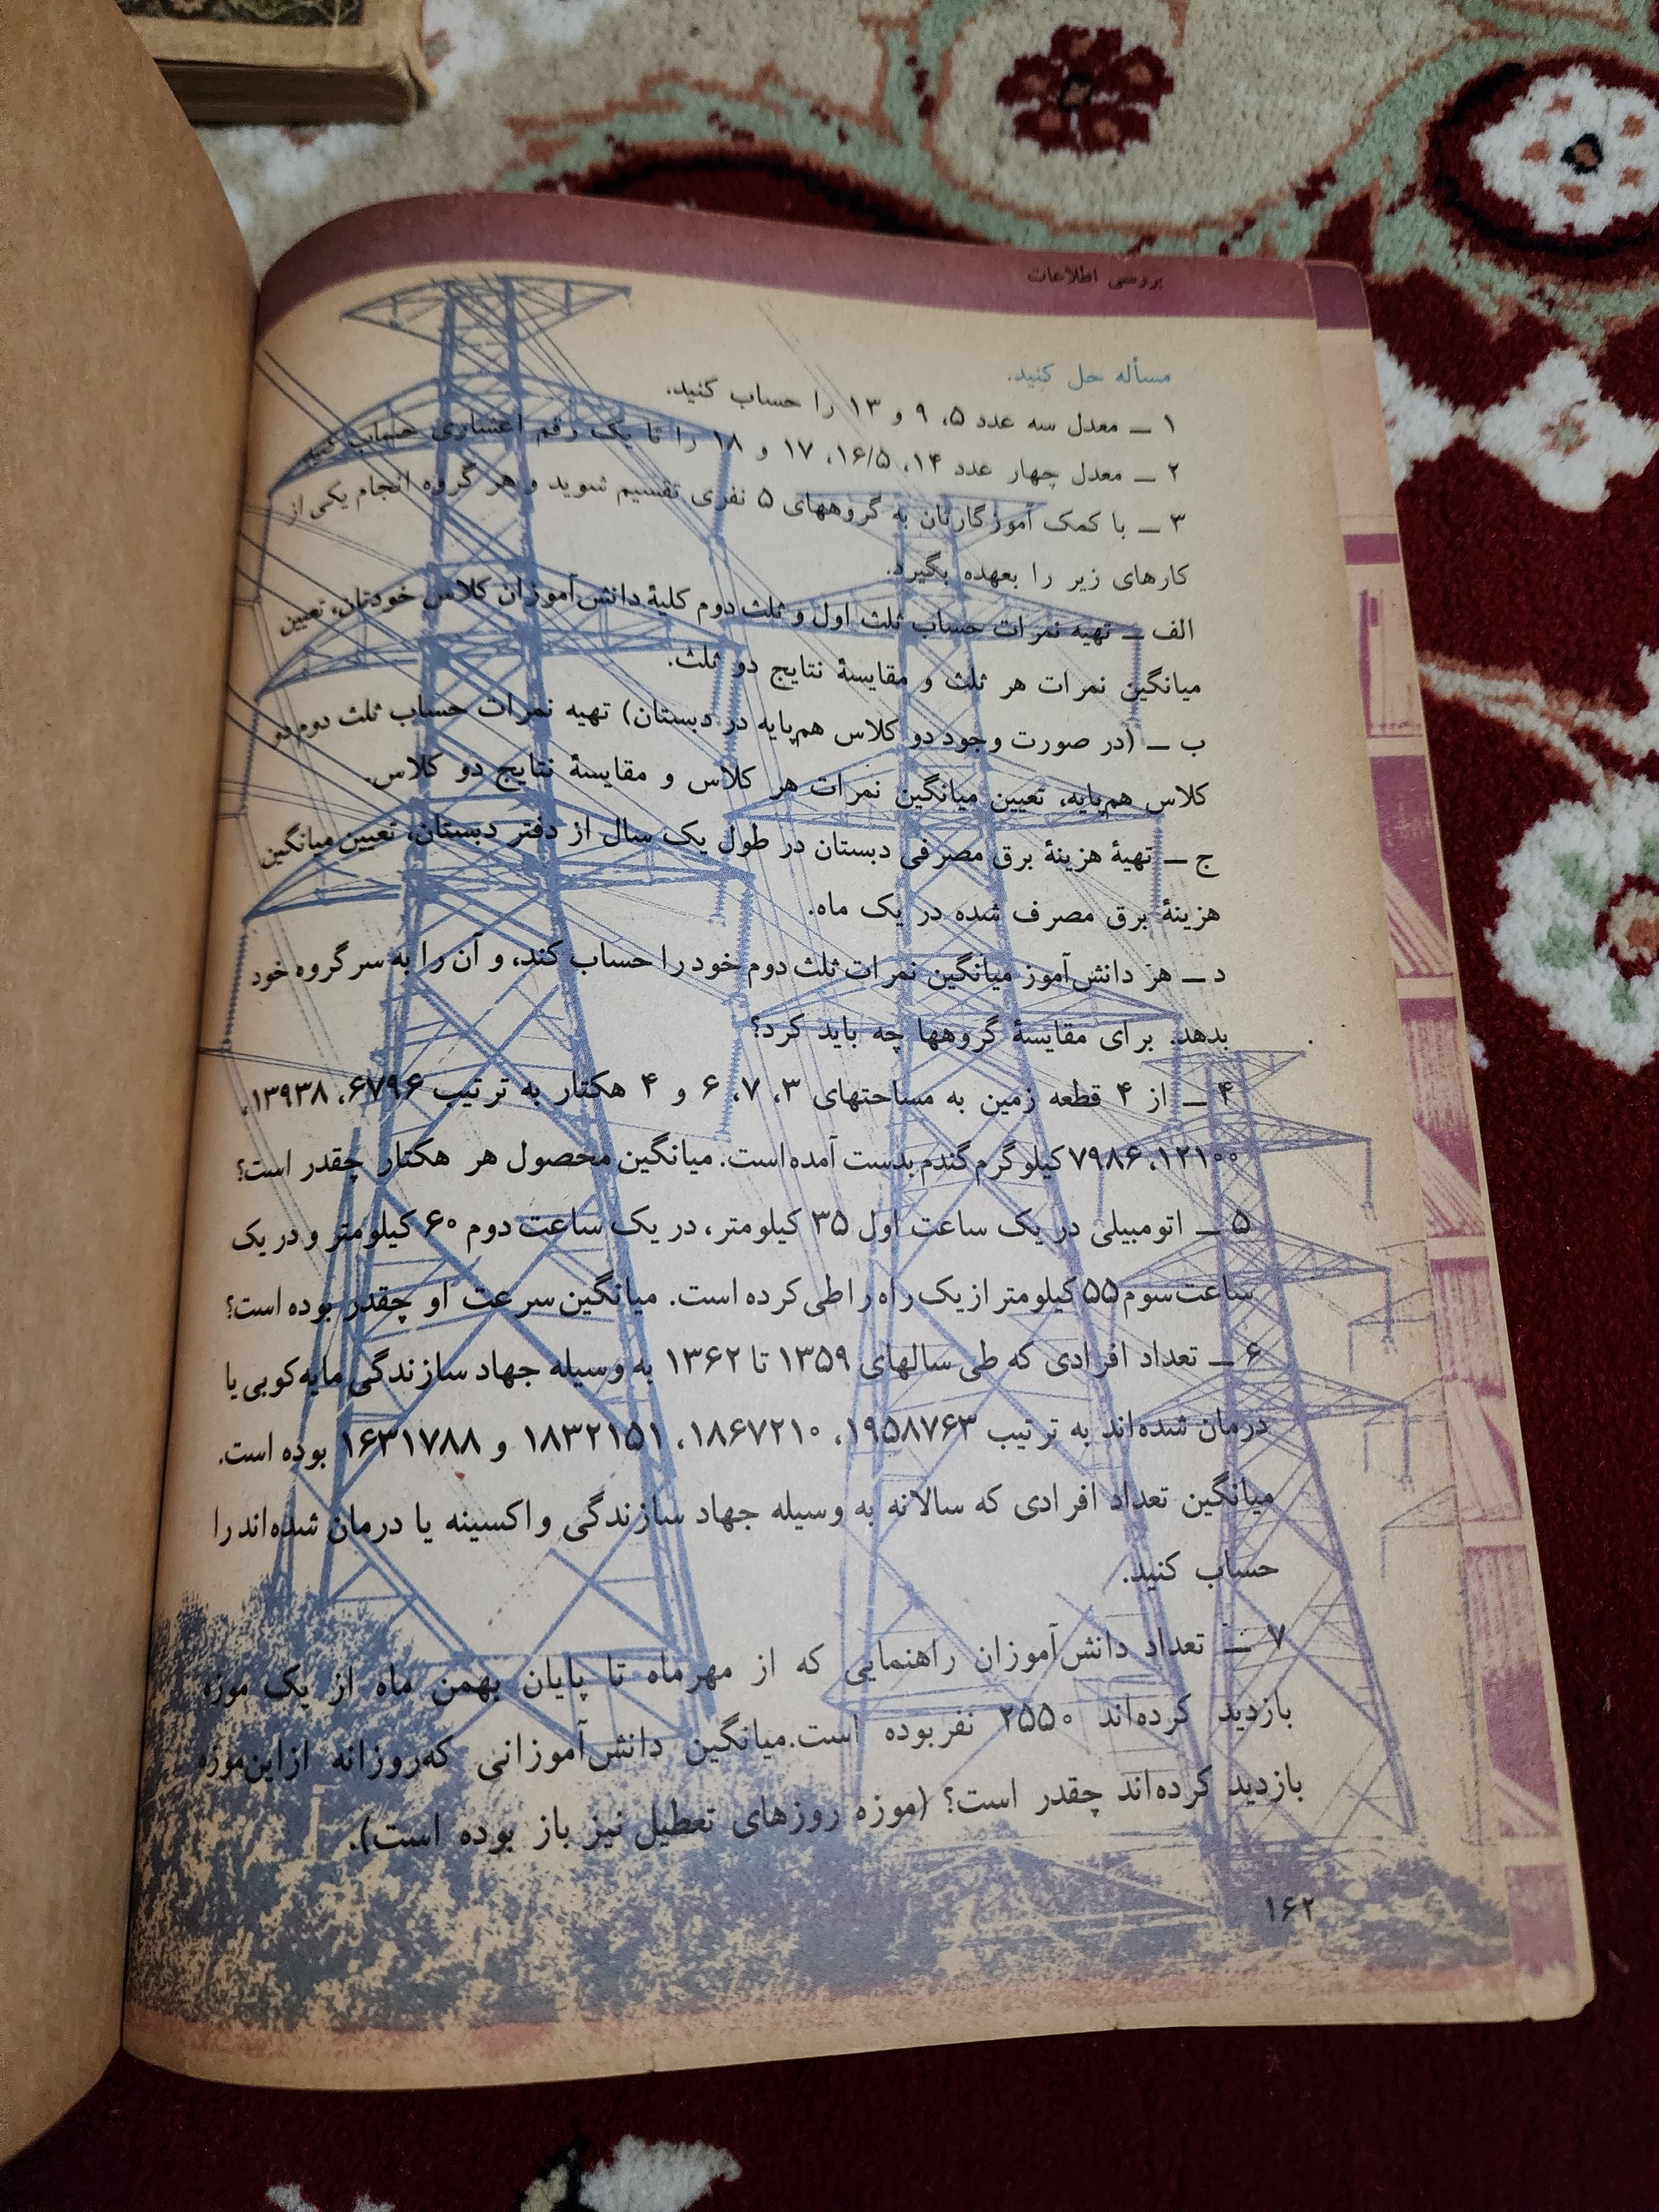 بررسی اطلاعات
مسأله حل کنید.
۱ – معدل سه عدد ۵، ۹ و ۱۳ را حساب کنید.
۲ – معدل چهار عدد ۱۴، ۱۶/۵، ۱۷ و ۱۸ را تا یک رقم اعشاری حساب کنید.
۳ – با کمک آموزگارتان به گروههای ۵ نفری تقسیم شوید و هر گروه انجام یکی از
کارهای زیر را بعهده بگیرد.
الف – تهیه نمرات حساب ثلث اول و ثلث دوم کلیۀ دانش‌آموزان کلاس خودتان، تعیین
میانگین نمرات هر ثلث و مقایسۀ نتایج دو ثلث.
ب – (در صورت وجود دو کلاس هم‌پایه در دبستان) تهیه نمرات حساب ثلث دوم دو
کلاس هم‌پایه، تعیین میانگین نمرات هر کلاس و مقایسۀ نتایج دو کلاس.
ج – تهیۀ هزینۀ برق مصرفی دبستان در طول یک سال از دفتر دبستان، تعیین میانگین
هزینۀ برق مصرف شده در یک ماه.
د – هر دانش‌آموز میانگین نمرات ثلث دوم خود را حساب کند، و آن را به سر گروه خود
بدهد. برای مقایسۀ گروهها چه باید کرد؟
۴ – از ۴ قطعه زمین به مساحتهای ۳، ۷، ۶ و ۴ هکتار به ترتیب ۶۷۹۶، ۱۳۹۳۸،
۱۲۱۰۰، ۷۹۸۶ کیلوگرم گندم بدست آمده است. میانگین محصول هر هکتار چقدر است؟
۵ – اتومبیلی در یک ساعت اول ۳۵ کیلومتر، در یک ساعت دوم ۶۰ کیلومتر و در یک
ساعت سوم ۵۵ کیلومتر از یک راه را طی کرده است. میانگین سرعت او چقدر بوده است؟
۶ – تعداد افرادی که طی سالهای ۱۳۵۹ تا ۱۳۶۲ به وسیله جهاد سازندگی مایه‌کوبی یا
درمان شده‌اند به ترتیب ۱۹۵۸۷۶۳، ۱۸۶۷۲۱۰، ۱۸۳۲۱۵۱ و ۱۶۳۱۷۸۸ بوده است.
میانگین تعداد افرادی که سالانه به وسیله جهاد سازندگی واکسینه یا درمان شده‌اند را
حساب کنید.
۷ – تعداد دانش‌آموزان راهنمایی که از مهرماه تا پایان بهمن ماه از یک موزه
بازدید کرده‌اند ۲۵۵۰ نفر بوده است. میانگین دانش‌آموزانی که روزانه از این موزه
بازدید کرده‌اند چقدر است؟ (موزه روزهای تعطیل نیز باز بوده است).
۱۶۲